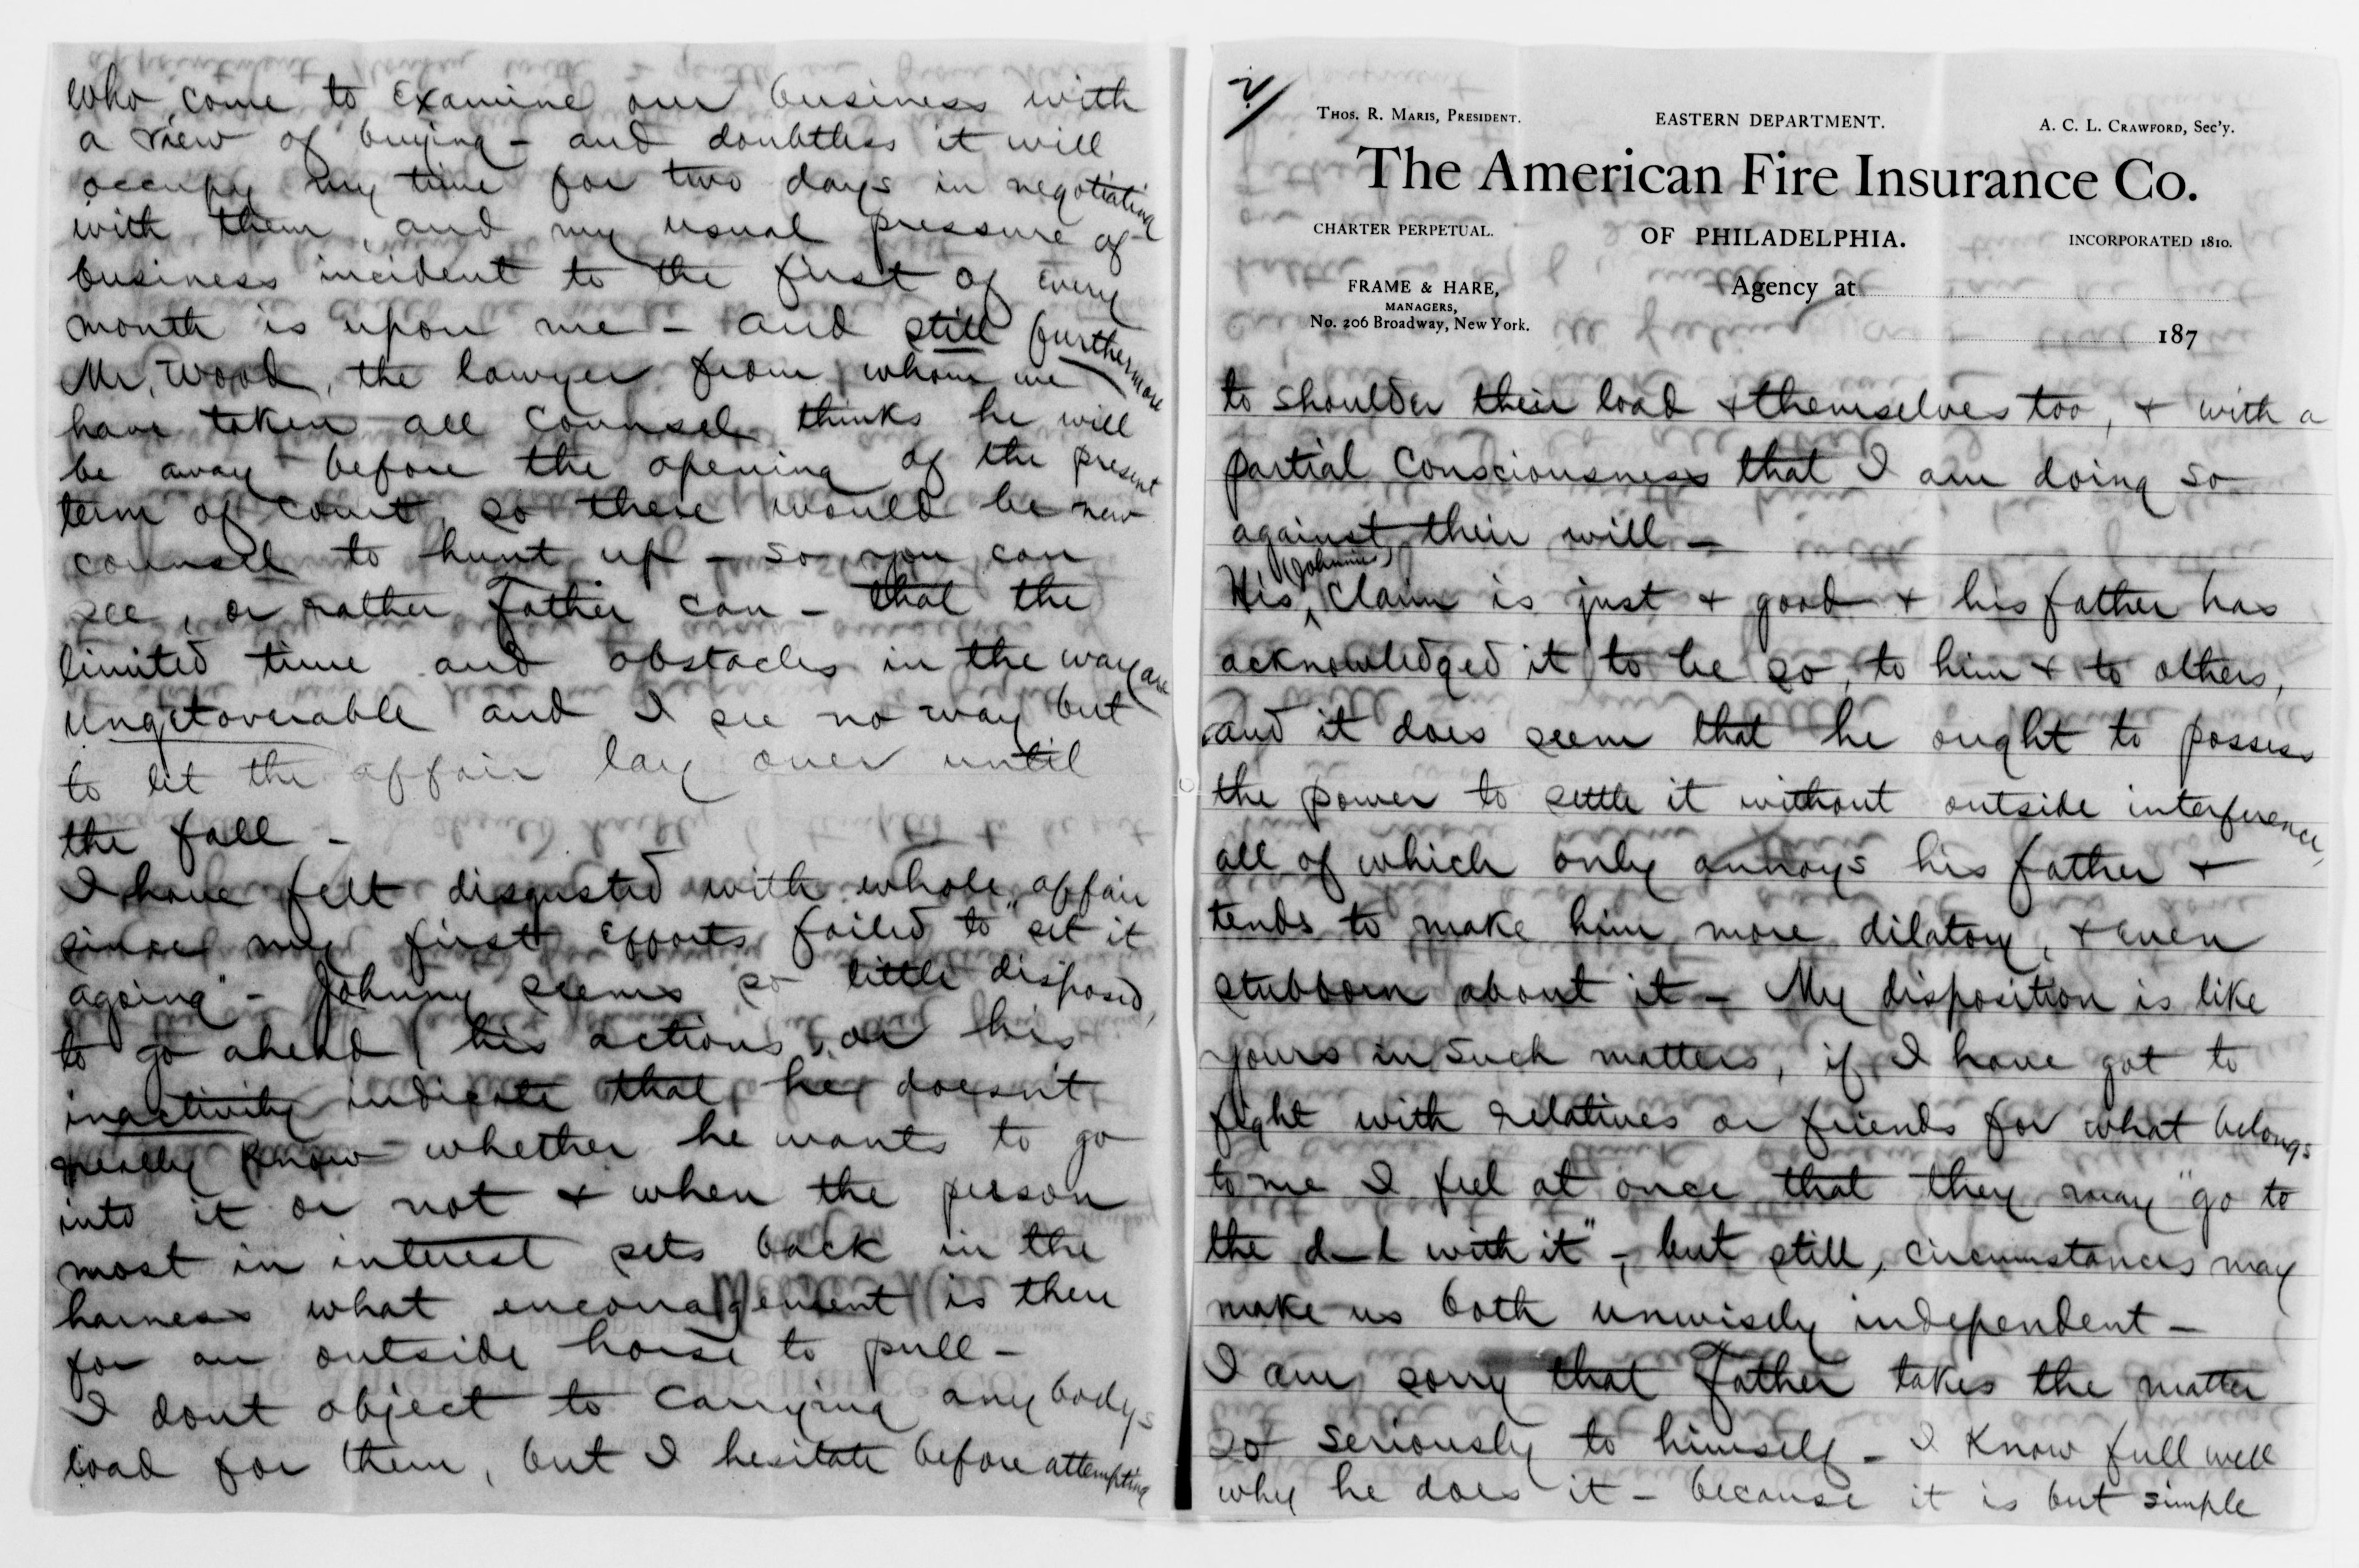 who come to examine our business with
a view of buying - and doubtless it will
occupy my time for two days in negotiating
with them, and my usual pressure of
business incident to the first of every
month is upon me - and still furthermore
Mr. Wood, the lawyer from whom we
have taken all counsel thinks he will
be away before the opening of the present
term of court, so there would be new
counsel to hunt up - so you can
see, or rather Father can - that the
limited time and obstacles in the way are
ungetoverable and I see no way but
to let the affair lay over until
the fall -
I have felt disgusted with whole affair
since my first efforts failed to "set it
agoing" - Johnny seems so little disposed,
to go ahead (his actions, or his
inactivity indicate that he doesn't
really know whether he wants to go
into it or not & when the person
most in interest sets back in the
harness what encouragement is there
for an outside horse to pull -
I dont object to carrying any bodys
load for them, but I hesitate before attempting
2/
Thos. R. Maris, President.
EASTERN DEPARTMENT.
A. C. L. Crawford, Sec'y.
The American Fire Insurance Co.
CHARTER PERPETUAL.
OF PHILADELPHIA.
INCORPORATED 1810.
FRAME & HARE,
MANAGERS,
No. 206 Broadway, New York.
Agency at
187
to shoulder their load & themselves too, & with a
partial consciousness that I am doing so
against their will -
(Johnnie's)
His claim is just & good & his father has
acknowledged it to be so, to him & to others,
and it does seem that he ought to possess
the power to settle it without outside interference,
all of which only annoys his father &
tends to make him more dilatory, & even
stubborn about it - My disposition is like
yours in such matters, if I have got to
fight with relatives or friends for what belongs
to me I feel at once that they may "go to
the d-l with it" -, but still, circumstances may
make us both unwisely independent -
I am sorry that Father takes the matter
so seriously to himself - I know full well
why he does it - because it is but simple